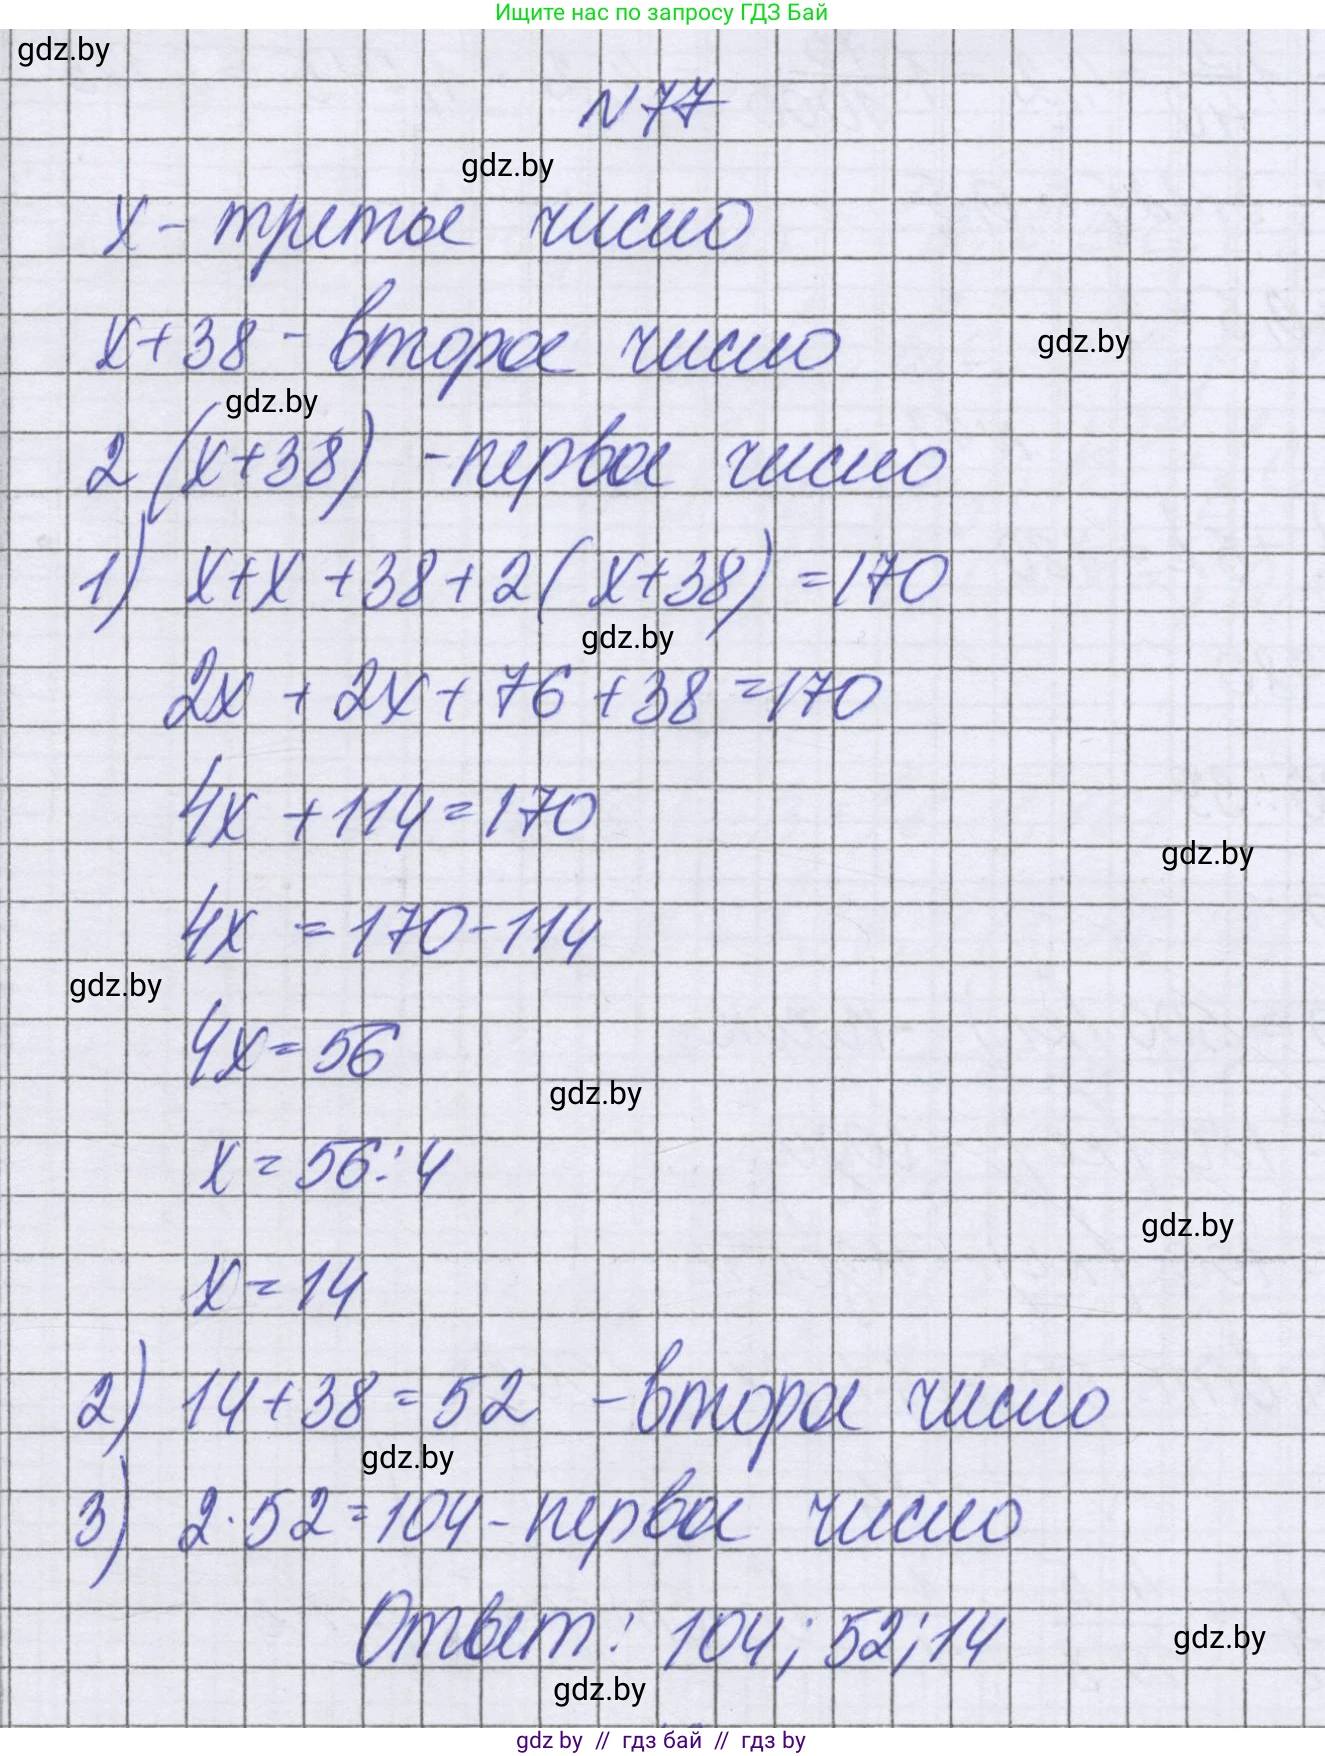 Ищите нас по запросу ГДЗ Бай
gdz.by
N77
gdz.by
x - третье число
x+38 - второе число
gdz.by
gdz.by
2(x+38) - первое число
1) x+x+38+2(x+38)=170
gdz.by
2x+2x+76+38=170
4x+114=170
gdz.by
4x=170-114
gdz.by
4x=56
gdz.by
x=56:4
gdz.by
x=14
2) 14+38=52 - второе число
gdz.by
3) 2·52=104 - первое число
Ответ: 104; 52; 14
gdz.by
gdz.by
gdz by // гдз бай // гдз by